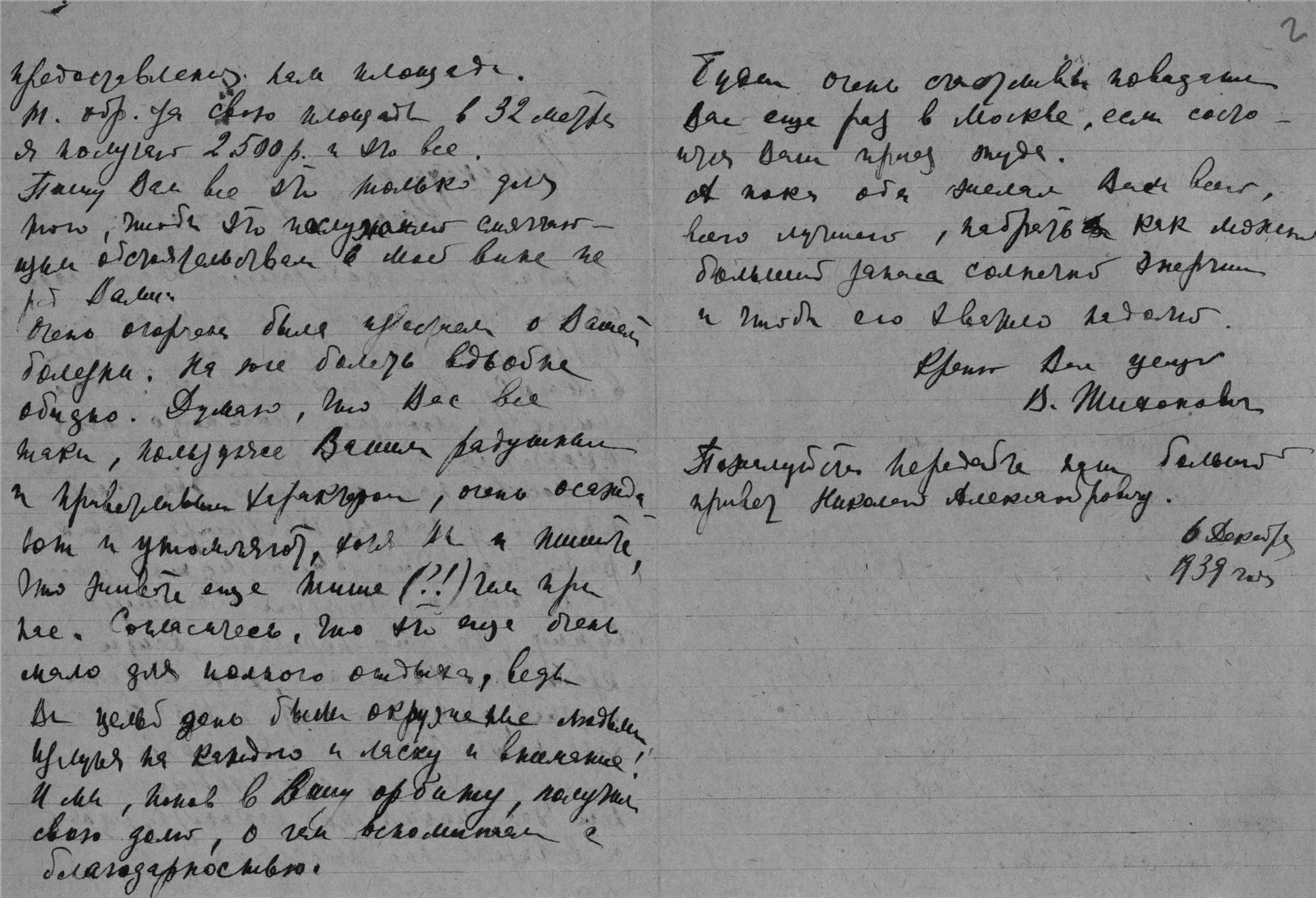 предоставлении нам площади.
т. обр. за свою площадь в 32 метра
я получаю 2500 р. и это все.
Пишу Вам все это только для
того, чтобы это послужило смягчаю-
щим обстоятельствам в моей вине пе
ред Вами.
Очень огорчена была известием о Вашей
болезни. На юге болеть вдвойне
обидно. Думаю, что Вас все
таки, пользуясь Вашим радушным
и приветливым характером, очень осажда
ют и утомляют, хотя Вы и пишите,
что живете еще тише (?!) чем при
нас. Согласитесь, что это еще очень
мало для полного отдыха, ведь
Вы целый день были окружены людьми
излучая на каждого и ласку и внимание!
И мы, попав в Вашу орбиту, получили
свою долю, о чем вспоминаем с
благодарностью.
2
Будем очень счастливы повидать
Вас еще раз в Москве, если состо-
ится Ваш приезд туда.
А пока оба желаем Вам всего,
всего лучшего, набрать как можно
больший запас солнечной энергии
и чтобы его хватило надолго.
Крепко Вас целую
В. Тихонович
Пожалуйста передайте наш большой
привет Николаю Александровичу.
6 Декабря
1939 года